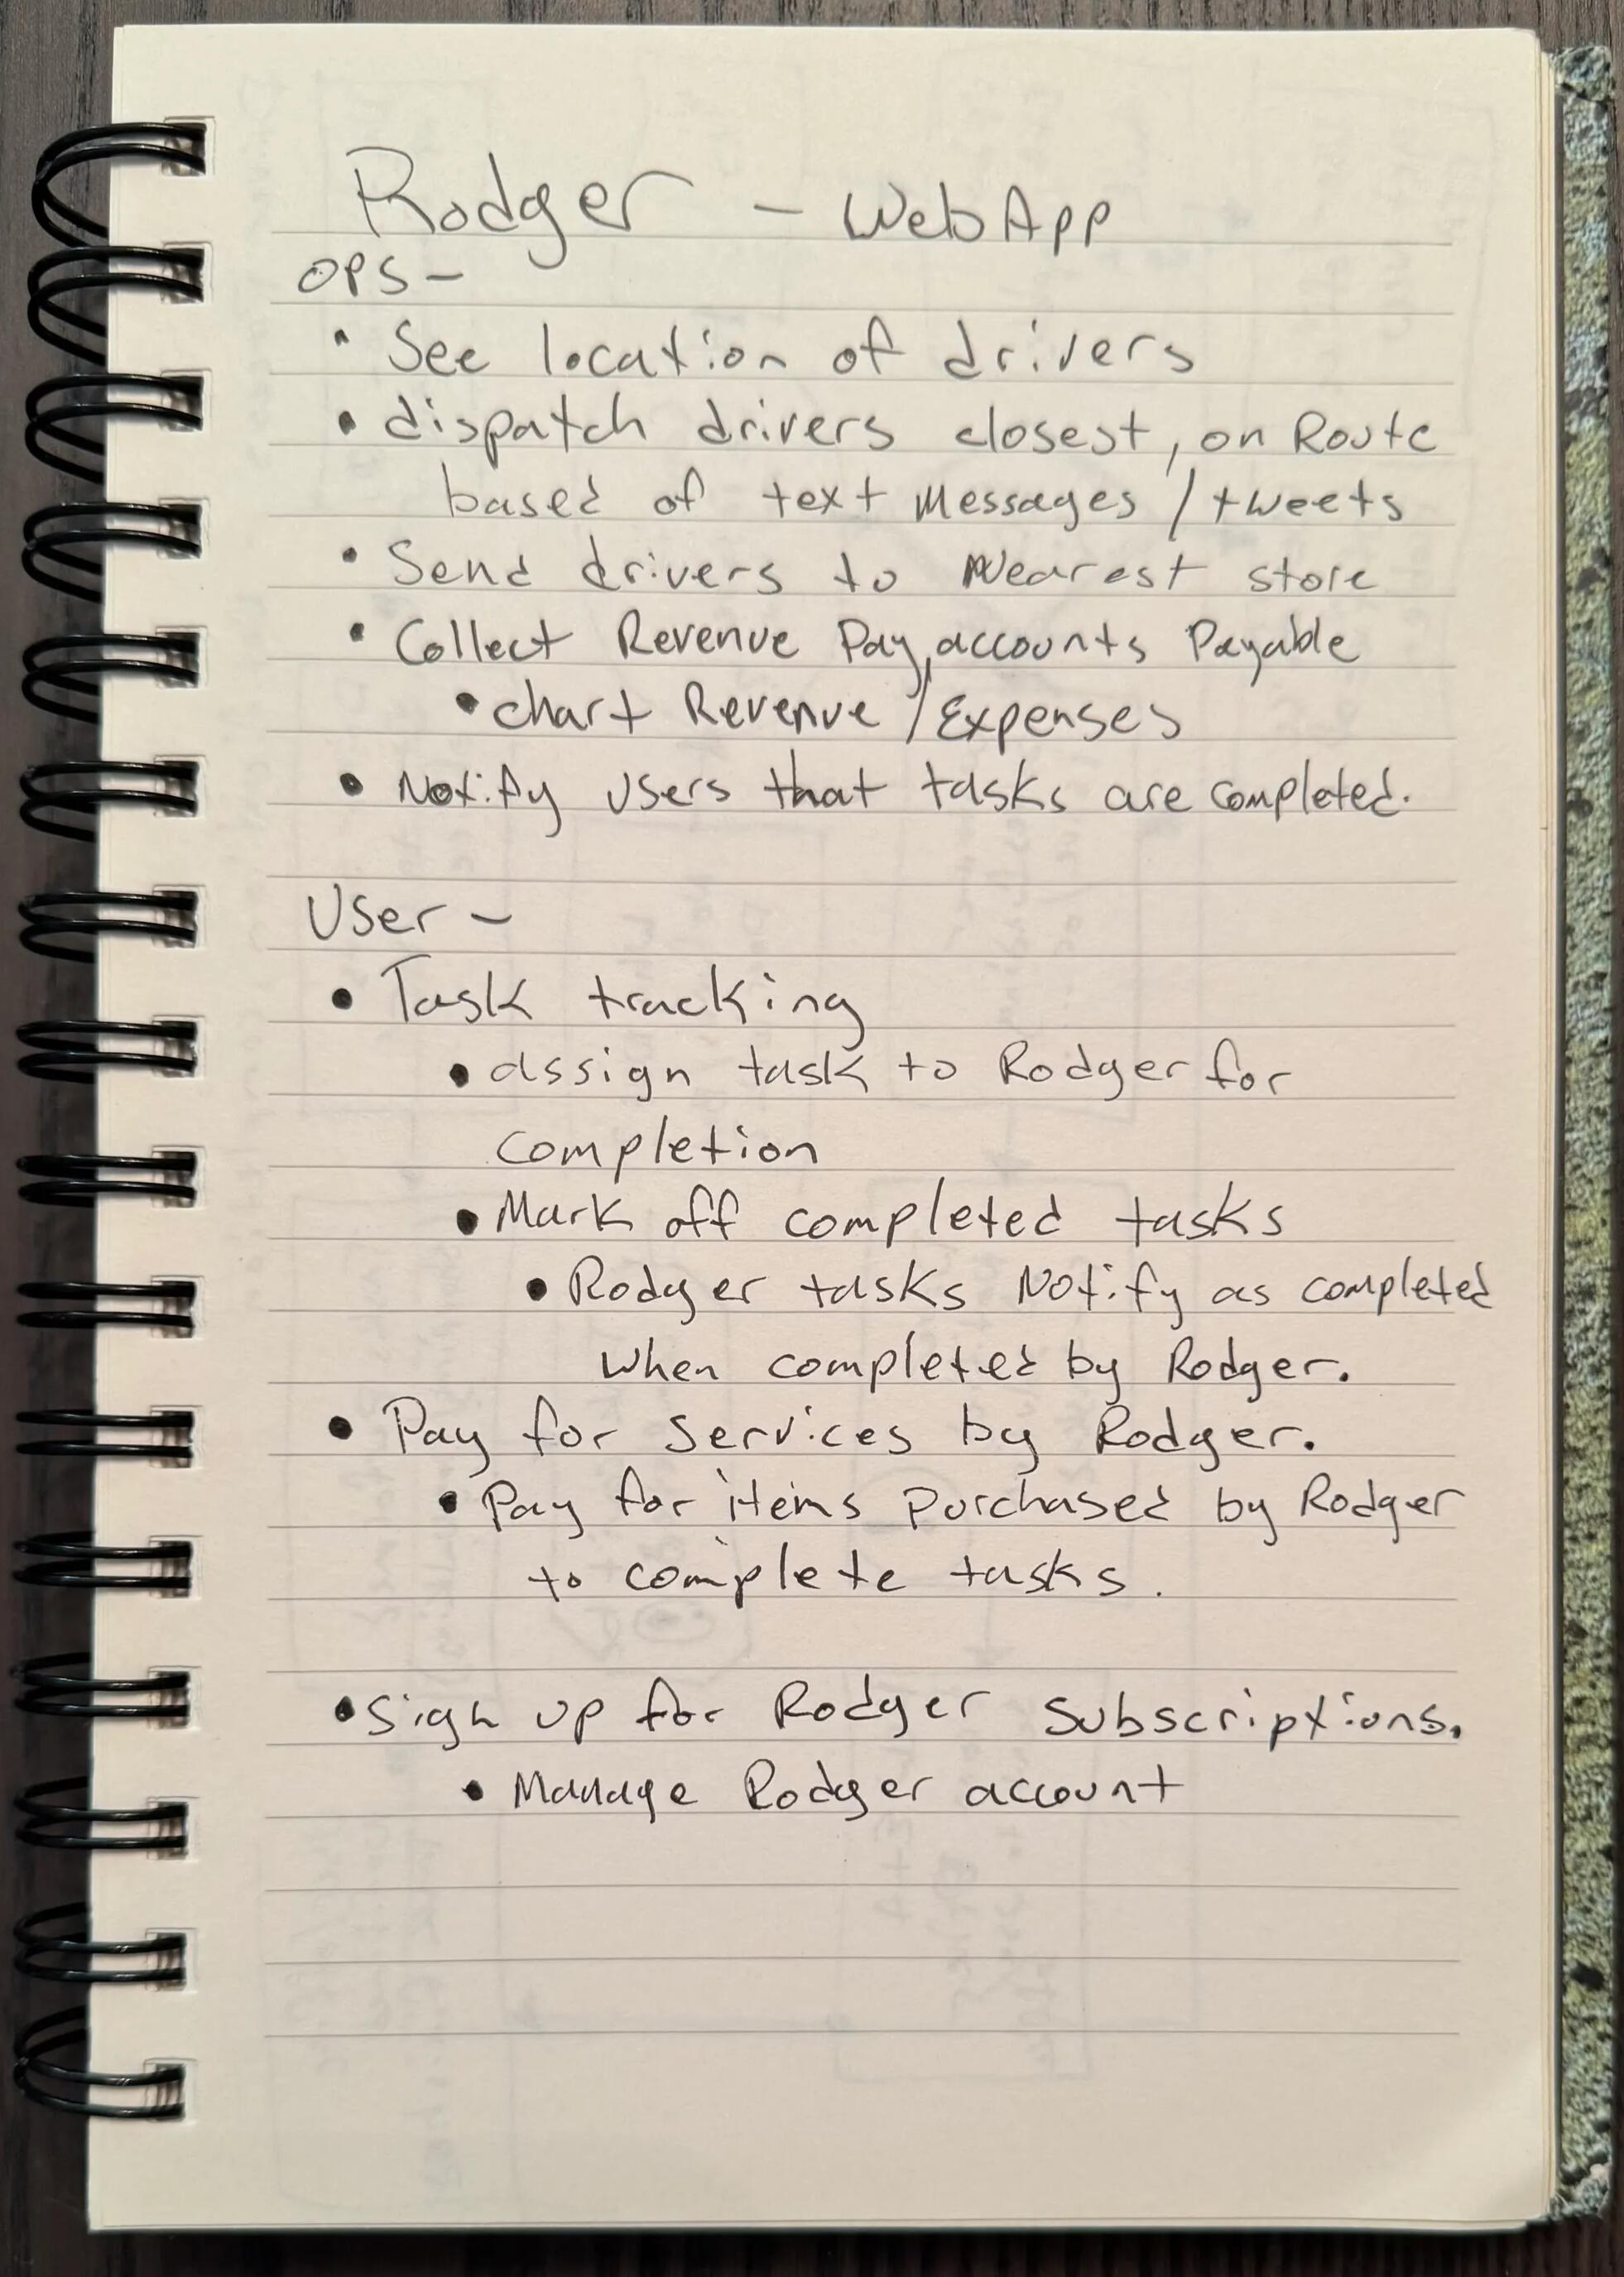 Rodger - WebApp
OPS-
• See location of drivers
• dispatch drivers closest, on Route
based of text Messages / tweets
• Send drivers to Nearest store
• Collect Revenue Pay, accounts Payable
• chart Revenue / Expenses
• Notify Users that tasks are completed.
User -
• Task tracking
• assign task to Rodger for
completion
• Mark off completed tasks
• Rodger tasks Notify as completed
when completed by Rodger.
• Pay for services by Rodger.
• Pay for items purchased by Rodger
to complete tasks.
• Sign up for Rodger Subscriptions.
• Manage Rodger account